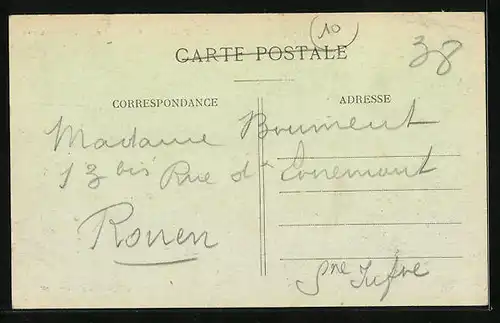 10
CARTE POSTALE
38
CORRESPONDANCE
ADRESSE
Madame Brument
13 bis Rue d'Ernemont
Rouen
Sne Infre